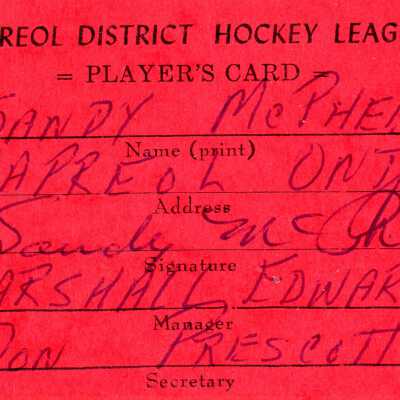 REOL DISTRICT HOCKEY LEAG
= PLAYER'S CARD =
SANDY McPHE
Name (print)
APREOL ONT
Address
Sandy McPh
Signature
ARSHALL EDWAR
Manager
DON PRESCOTT
Secretary